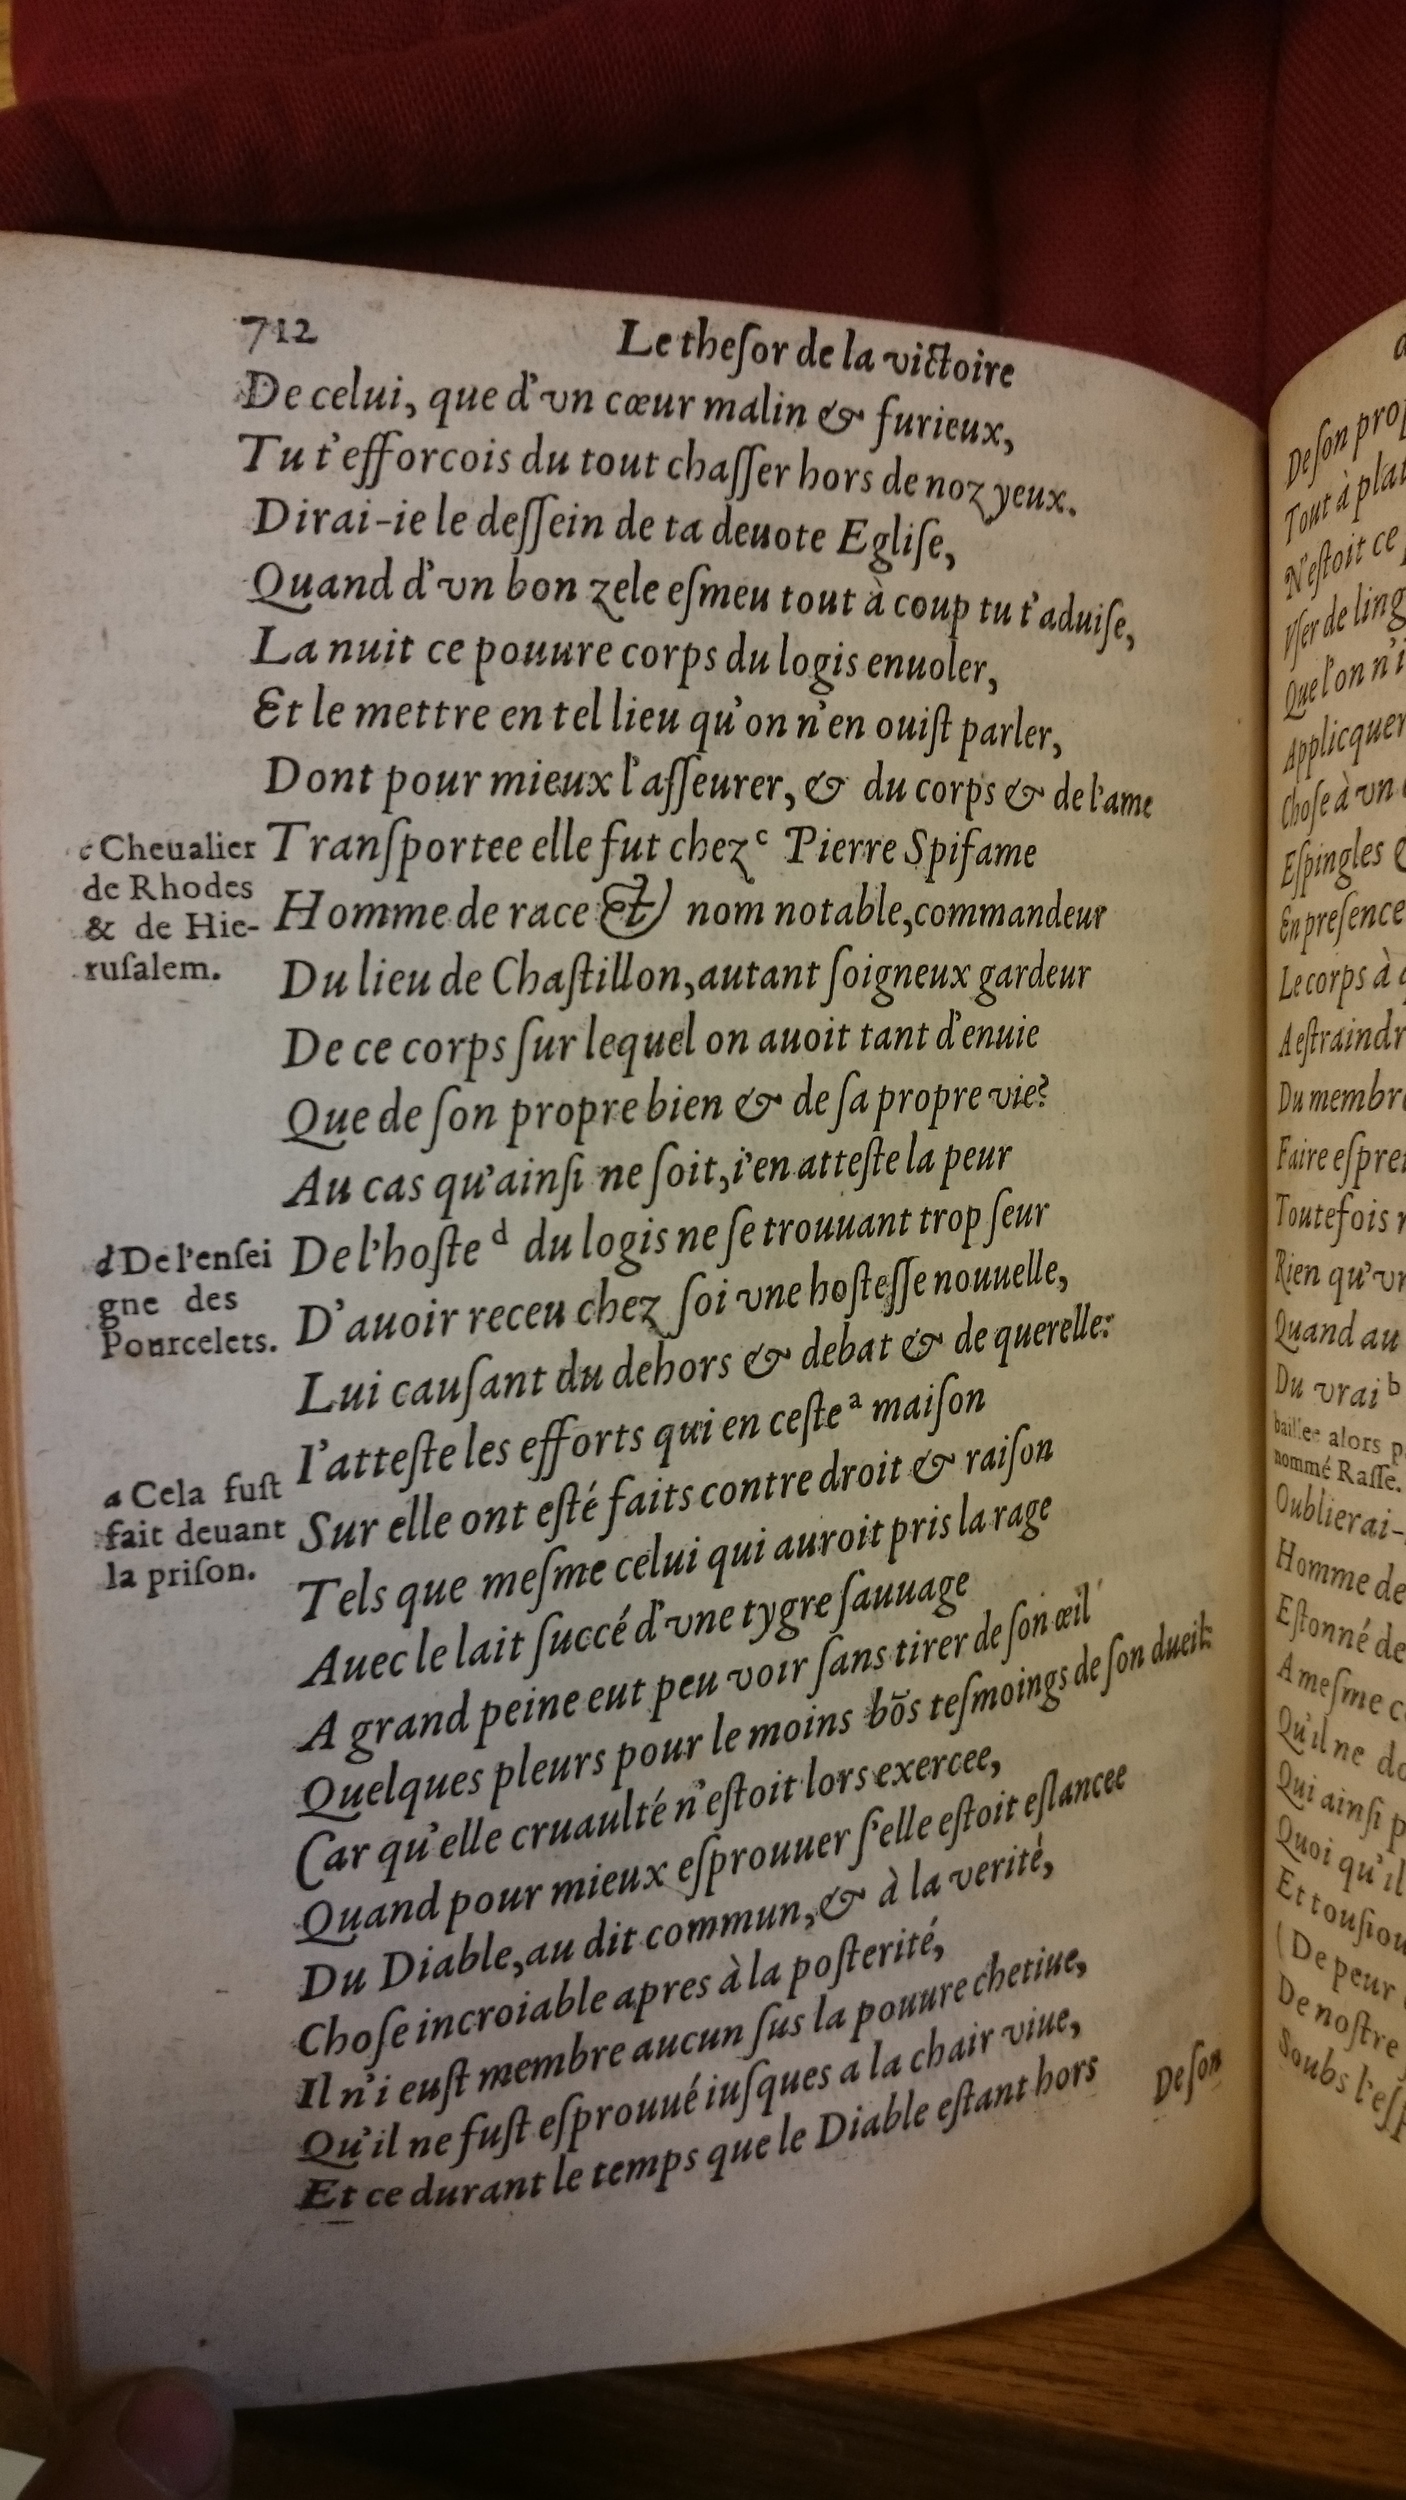 712
Le theſor de la victoire
De celui, que d'vn cœur malin & furieux,
Tu t'efforcois du tout chaſſer hors de noz yeux.
Dirai-ie le deſſein de ta deuote Egliſe,
Quand d'vn bon zele eſmeu tout à coup tu t'aduiſe,
La nuit ce pouure corps du logis enuoler,
Et le mettre en tel lieu qu'on n'en ouiſt parler,
Dont pour mieux l'aſſeurer, & du corps & de l'ame
Tranſportee elle fut chez c Pierre Spifame
Homme de race & nom notable, commandeur
Du lieu de Chaſtillon, autant ſoigneux gardeur
De ce corps ſur lequel on auoit tant d'enuie
Que de ſon propre bien & de ſa propre vie?
Au cas qu'ainſi ne ſoit, i'en atteſte la peur
De l'hoſte d du logis ne ſe trouuant trop ſeur
D'auoir receu chez ſoi vne hoſteſſe nouuelle,
Lui cauſant du dehors & debat & de querelle:
I'atteſte les efforts qui en ceſte a maiſon
Sur elle ont eſté faits contre droit & raiſon
Tels que meſme celui qui auroit pris la rage
Auec le lait ſuccé d'vne tygre ſauuage
A grand peine eut peu voir ſans tirer de ſon œil
Quelques pleurs pour le moins bõs teſmoings de ſon dueil:
Car qu'elle cruaulté n'eſtoit lors exercee,
Quand pour mieux eſprouuer ſ'elle eſtoit eſlancee
Du Diable, au dit commun, & à la verité,
Choſe incroiable apres à la poſterité,
Il n'i euſt membre aucun ſus la pouure chetiue,
Qu'il ne fuſt eſprouué iuſques a la chair viue,
Et ce durant le temps que le Diable eſtant hors
De ſon
c Cheualier
de Rhodes
& de Hie-
ruſalem.
d De l'enſei
gne des
Pourcelets.
a Cela fuſt
fait deuant
la priſon.
De ſon
Tout à
N'eſtoit ce
Vſer de
Que l'on
Applicquer
Choſe à vn
Eſpingles
En preſence
Le corps à
Du
Faire
Toutefois
Rien
Quand au
Du vrai b
baillee alors
nommé Raſſe.
Oublierai-
Homme de
Eſtonné de
A meſme
Qu'il ne
Qui ainſi
Quoi qu'il
Et
(De peur
De noſtre
Soubs